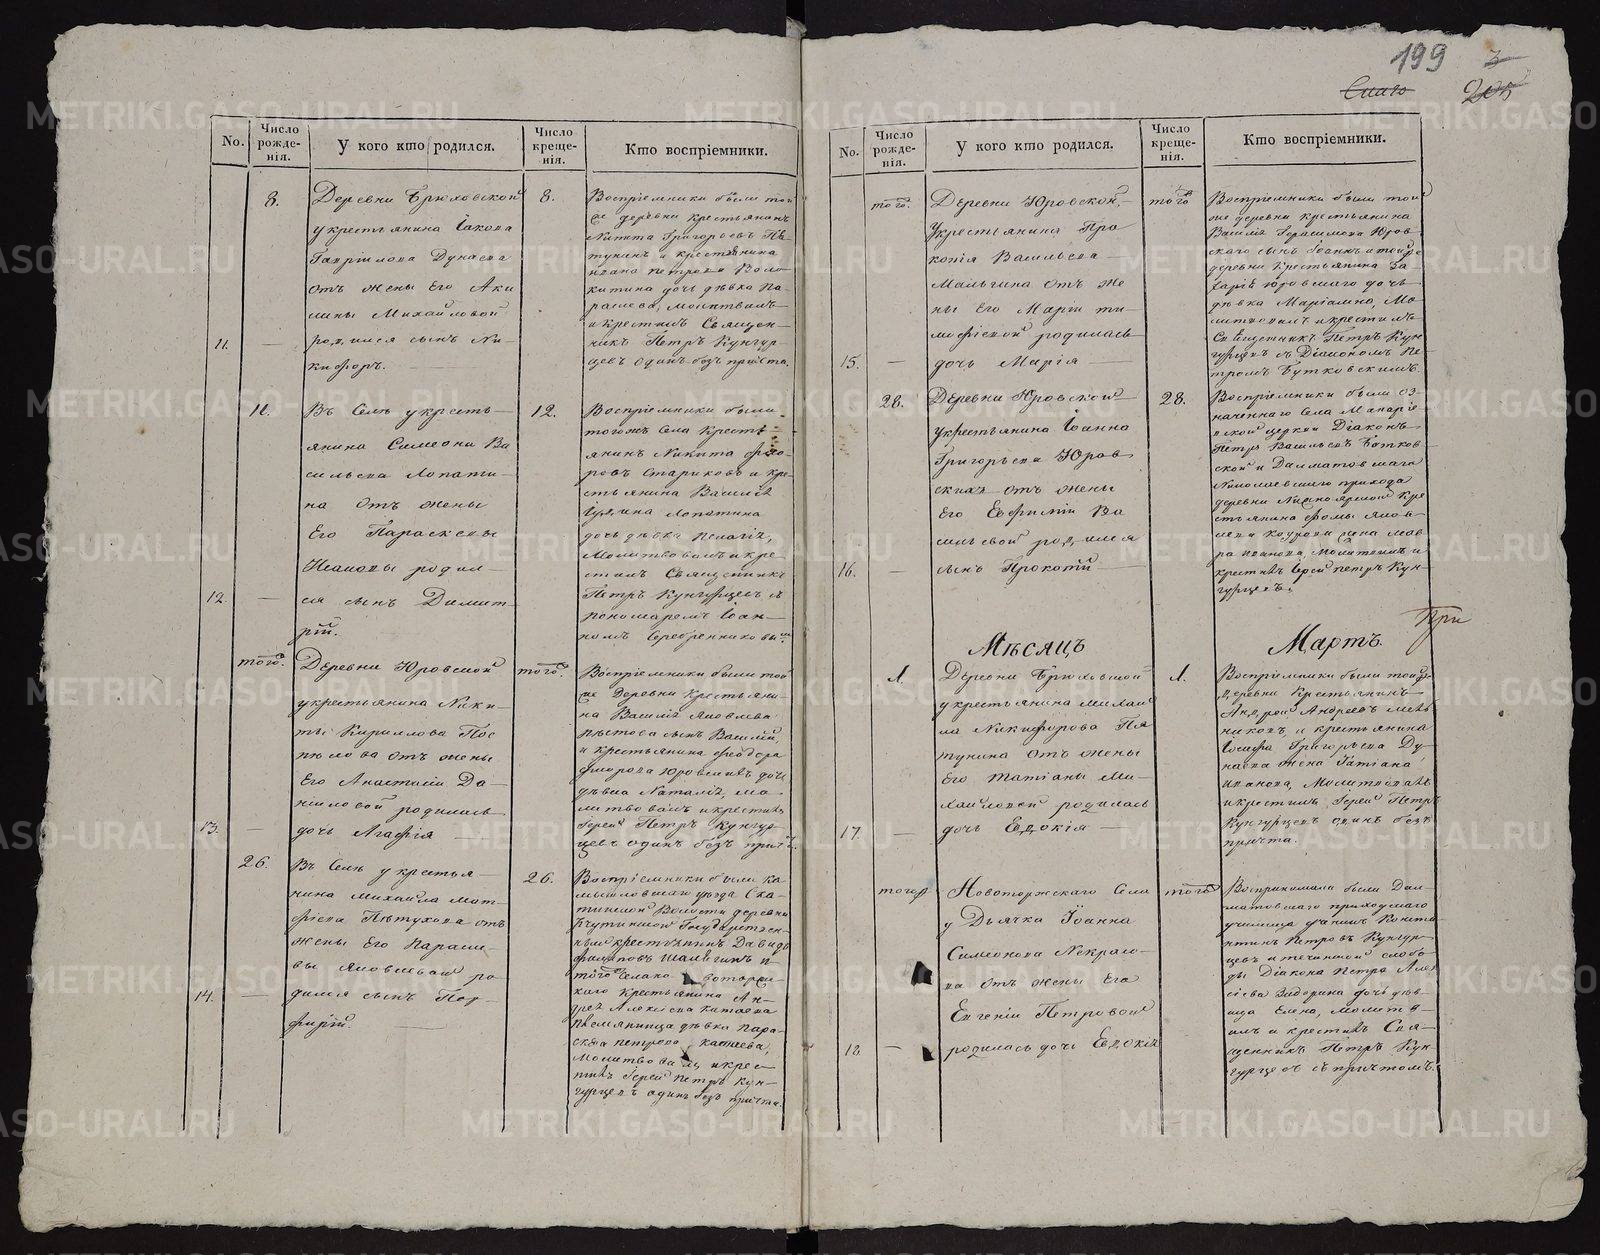 199 3
205
No.
Число рожденія.
У кого кто родился.
Число крещенія.
Кто воспріемники.
8.
Деревни Брюховской
у крестьянина Іакова
Гавриилова Дунаева
отъ жены его Аки
лины Михайловой
11. —
родился сынъ Ни-
кифоръ.
8.
Воспріемники были той
же деревни крестьянинъ
Никита Григорьевъ Пя-
тунинъ и крестьянина
Ивана Петрова
дочь дѣвка Па-
раскева, молитвилъ
и крестилъ Священ-
никъ Петръ Кунгур-
цевъ одинъ безъ причта.
11.
Въ Селѣ у кресть-
янина Симеона Ва
сильева Лопати-
на отъ жены
Его Параскевы
Ивановы родил-
12. —
ся сынъ Димит-
рій.
12.
Воспріемники были
тогожъ Села Кресть-
янинъ Никита Федо-
ровъ Стариковъ и кре-
стьянина Василія
Лопатина
дочь дѣвка Пелагія,
Молитвовалъ и кре-
стилъ Священникъ
Петръ Кунгурцевъ съ
пономаремъ Іоан-
номъ Серебренниковы.
того.
Деревни Юровской
у крестьянина Ники-
ты Кириллова Пос
пѣлова отъ жены
Его Анастасіи Да-
ниловой родилась
13. —
дочь Агафія —
того.
Воспріемники были той
же Деревни Крестьяни-
на Василія Яковлева
сынъ Василій,
и крестьянина Феодора
Юровскихъ дочь
дѣвка Наталія, мо-
литвовалъ и крестилъ
Іерей Петръ Кунгур-
цевъ одинъ безъ причт.
26.
Въ Селѣ у крестья-
нина Михаила Мат-
фіева Пѣтухова отъ
жены Его Параске-
вы Яковлевой ро-
14. —
дился сынъ Пор-
фирій.
26.
Воспріемники были Ка-
мышловскаго уѣзда Ска-
тинской Волости деревни
Государствен-
ный крестьянинъ Давидъ
Филиповъ Шалыгинъ и
того
крестьянина Ан-
дрея Алексѣева Катаева
племянница дѣвка Пара-
скева Петрова Катаева,
Молитвовалъ и крес-
тилъ Іерей Петръ Кун-
гурцевъ одинъ безъ причта.
No.
Число рожденія.
У кого кто родился.
Число крещенія.
Кто воспріемники.
того.
Деревни Юровской,
У крестьянина Про
копія Васильева
Малыгина отъ же
ны Его Маріи Ти-
мофіевой родилась
15. —
дочь Марія —
того
Воспріемники были той
же деревни крестьянина
Василія Герасимова Юров-
скаго сынъ Іоаннъ и той же
деревни Крестьянина За
харія Юровскаго дочь
дѣвка Маріамна, Мо-
литвовалъ и крестилъ
Священникъ Петръ Кун
гурцевъ съ Діакономъ Пе
тромъ Бутковскимъ.
28.
Деревни Юровской
у крестьянина Іоанна
Григорьева Юров
скихъ отъ жены
Его Евфиміи Ва
сильевой родился
16. —
сынъ Прокопій —
28.
Воспріемники были оз-
наченнаго Села Макаріе
вской церкви Діаконъ
Петръ Васильевъ Бутков-
ской и Далматовскаго
Николаевскаго прихода
деревни Нижноярской Кре
стьянина Фомы Яков-
лева жена Мав-
ра Иванова, Молитвилъ и
крестилъ Іерей Петръ Кун-
гурцевъ.
При
Мѣсяцъ Мартъ.
1.
Деревни Брюховской
у крестьянина Михаи
ла Никифорова Пя
тунина отъ жены
Его Татіаны Ми-
хайловой родилась
17. —
дочь Евдокія —
1.
Воспріемники были той же
деревни Крестьянинъ
Андрей Андреевъ
и крестьянина
Іосифа Григорьева Ду-
наева жена Татіана
Иванова, Молитвовалъ
и крестилъ Іерей Петръ
Кунгурцевъ одинъ безъ
причта.
того
Новоторжскаго Села
у Дьячка Іоанна
Симеонова Некрасо-
ва отъ жены Его
Евгеніи Петровой
18 —
родилась дочь Евдокія
того
Воспріемники были Дал-
матовскаго приходскаго
училища Конста-
нтинъ Петровъ Кунгур-
цевъ и Теченской слобо
ды Діакона Петра Алек
сіева Задорина дочь дѣв-
ица Елена, Молитв-
илъ и крестилъ Свя-
щенникъ Петръ Кун-
гурцевъ съ причтомъ.
METRIKI.GASO-URAL.RU